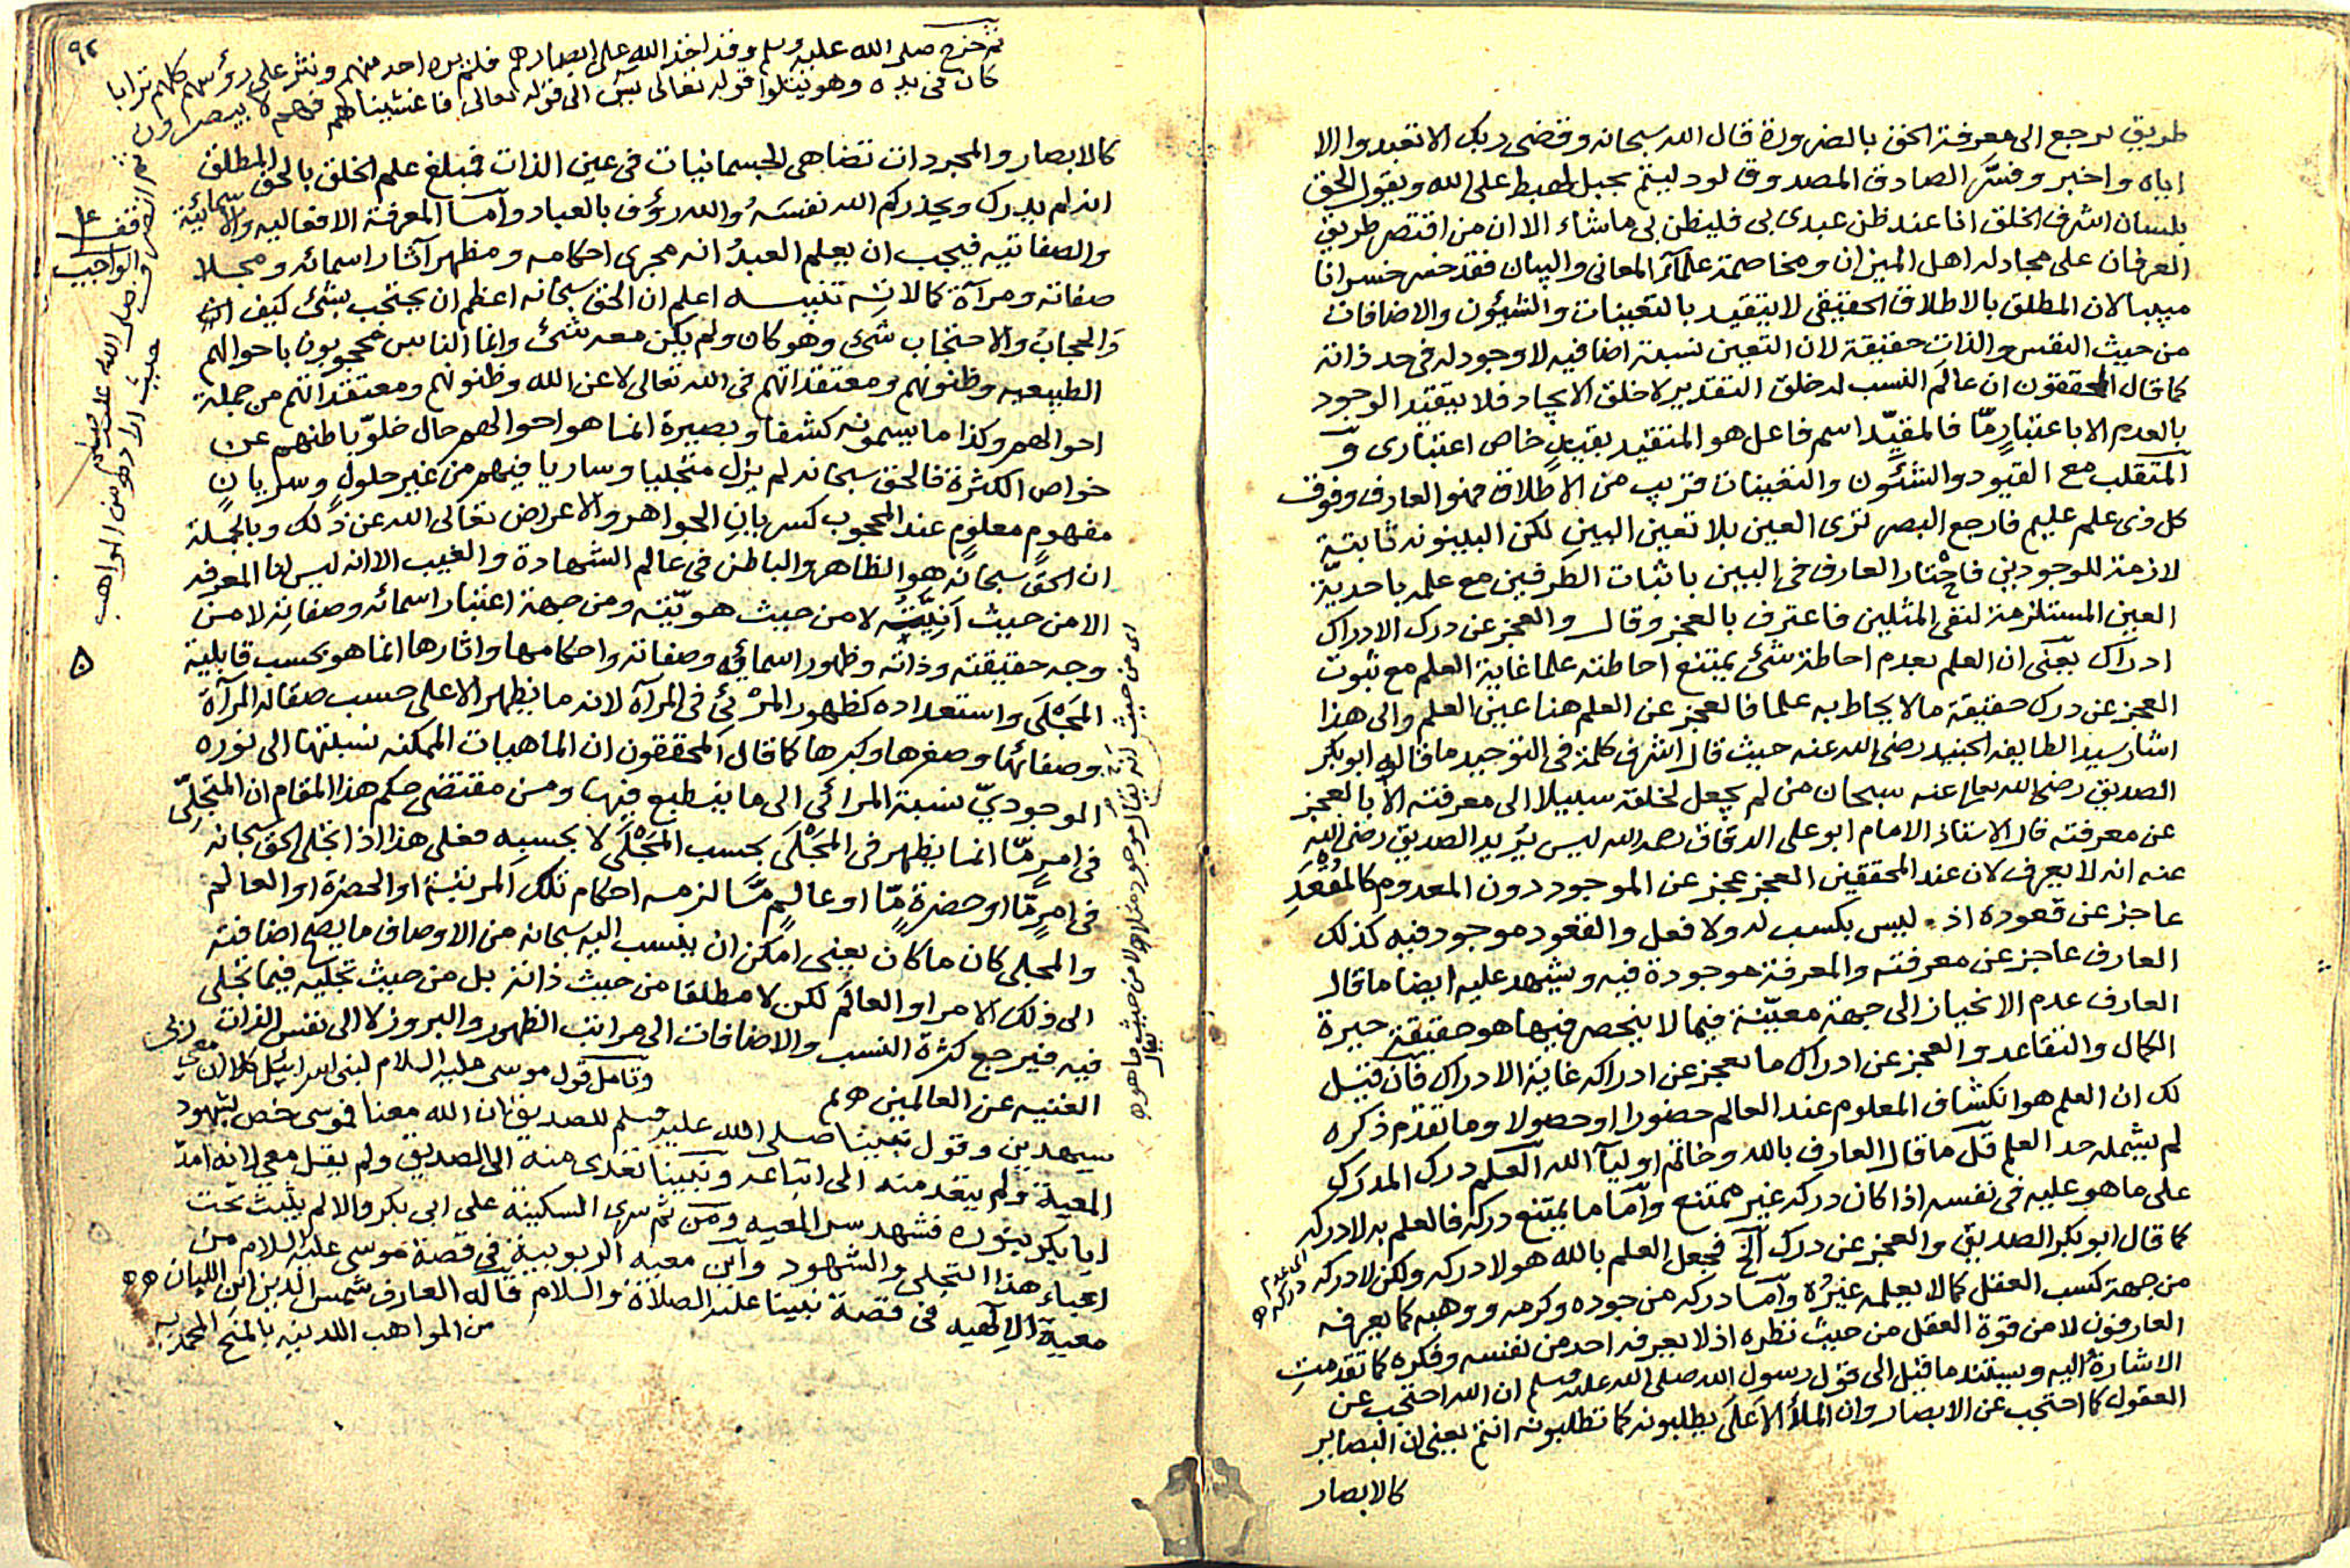 طريق يرجع الى معرفة الحق بالضرورة قال الله سبحانه وقضى ربك الا تعبدوا الا
اياه واخبر وفسّر الصادق المصدوق لو دليتم بحبل لهبط على الله ويقول الحق
بلسان اشرف الخلق انا عند ظن عبدي بي فليظن بي ما شاء الا ان من اقتصر طريق
العرفان على مجادله اهل الميزان ومخاصمة علمآء المعاني والبيان فقد خسر خسرانا
مبينا لان المطلق بالاطلاق الحقيقي لا يتقيد بالتعينات والشيئون والاضافات
من حيث النفس والذات حقيقة لان التعين نسبة اضافيه لا وجود له في حد ذاته
كما قال المحققون ان عالم النسب له خلق التقدير لا خلق الايجاد فلا يتقيّد الوجود
بالعدم الا باعتبارٍ مّا فالمقيّد اسم فاعل هو المتقيد بقيدٍ خاص اعتباري و
المتقلب مع القيود والشئون والتعينات قريب من الاطلاق فهو العارف وفوق
كل ذي علم عليم فارجع البصر ترى العين بلا تعين البين لكن البينونه ثابتة
لازمة للوجودين فاختار العارف في البين باثبات الطرفين مع علمه باحديّة
العين المستلزمة لنفي المثلين فاعترف بالعجز وقال والعجز عن درك الادراك
ادراك يعنى ان العلم بعدم احاطة شئ يمتنع احاطته علما غاية العلم مع ثبوت
العجز عن درك حقيقة ما لا يحاط به علما فالعجز عن العلم هنا عين العلم والى هذا
اشار سيد الطايفه الجنيد رضي الله عنه حيث قال اشرف كلمة في التوحيد ما قاله ابو بكر
الصديق رضى الله تعالى عنه سبحان من لم يجعل لخلقه سبيلا الى معرفته الا بالعجز
عن معرفته قال الاستاذ الامام ابو على الدقاق رحمه الله ليس يُريد الصديق رضى الله
عنه انه لا يعرف لان عند المحققين العجز عجز عن الموجود دون المعدوم كالمُقْعَدِ
عاجز عن قعوده اذ ليس بكسب له ولا فعل والقعود موجود فيه كذلك
العارف عاجز عن معرفته والمعرفة موجودة فيه ويشهد عليه ايضا ما قال
العارف عدم الانحياز الى جهة معيّنة فيما لا ينحصر فيها هو حقيقة حيرة
الكمال والتقاعد والعجز عن ادراك ما يعجز عن ادراكه غاية الادراك فان قيل
لك ان العلم هو انكشاف المعلوم عند العالم حضورا او حصولا وما تقدم ذكره
لم يشمله حد العلم قل ما قال العارف بالله وخاتم اوليآ الله العلم درك المدرَك
على ما هو عليه في نفسه اذا كان دركه غير ممتنع واما ما يمتنع دركه فالعلم به لا دركه
كما قال ابو بكر الصديق والعجز عن درك الخ فجعل العلم بالله هو لا دركه ولكن لا دركه
من جهة كسب العقل كما لا يعلمه غيرُه وامّا دركه من جوده وكرمه ووهبه كما يعرفه
العارفون لا من قوة العقل من حيث نظره اذ لا يعرفه احد من نفسه وفكره كما تقدمت
الاشارة اليه ويستند ما قيل الى قول رسول الله صلى الله عليه وسلم ان الله احتجب عن
العقول كما احتجب عن الابصار وان الملأ الاعلى يطلبونه كما تطلبونه انتم يعنى ان البصاير
كالابصار
ثم خرج صلى الله عليه وسلم وقد اخذ الله على ابصارهم فلم يره احد منهم ونثر على رؤسهم كلهم ترابا
كان فى يده وهو يتلوا قوله تعالى يس الى قوله تعالى فاغشيناهم فهم لا يبصرون
ثم انصرف صلى الله عليه وسلم حيث اراد من المواهب
كالابصار والمجردات تضاهي الجسمانيات في عين الذات فمبلغ علم الخلق بالحق المطلق
انه لم يدرك ويحذركم الله نفسَهُ والله رؤف بالعباد وامّا المعرفة الافعاليه والاسمائية
والصفاتيه فيجب ان يعلم العبدُ انه مجرى احكامه ومظهر آثار اسمائه ومجلا
صفاته ومرآة كمالاته تنبيه اعلم ان الحق سبحانه اعظم ان يحتجب بشئ كيف
والحجابُ والاحتجاب شئ وهو كان ولم يكن معه شئ وانما الناس محجوبون باحوالهم
الطبيعيه وظنونهم ومعتقداتهم فى الله تعالى لا عن الله وظنونهم ومعتقداتهم من جملة
احوالهم وكذا ما يسمونه كشفا وبصيرة انما هو احوالهم حال خلوّ باطنهم عن
خواص الكثرة فالحق سبحانه لم يزل متجليا وساريا فيهم من غير حلولٍ وسريانٍ
مفهومٍ معلومٍ عند المحجوب كسريانِ الجواهر والاعراض تعالى الله عن ذلك وبالجملة
ان الحق سبحانه هو الظاهر والباطن فى عالم الشهادة والغيب الا انه ليس لنا المعرفه
الا من حيث اَنِيّته لا من حيث هويّته ومن جهة اعتبار اسمائه وصفاته لا من
وجه حقيقته وذاته وظهور اسمائه وصفاته واحكامها واثارها انما هو بحسب قابلية
المَجْلَى واستعداده كظهور المرْئي فى المرآة لانه ما يظهر الا على حسب صقاله المرآة
وصفائها وصغرها وكبرها كما قال المحققون ان الماهيات الممكنه نسبتها الى نوره
الوجوديّ نسبة المرائي الى ما ينطبع فيها ومن مقتضى حكم هذا المقام ان المتجلّي
في امرٍ مّا انما يظهر فى المَجْلَى بحسب المَجْلَى لا بحسبه فعلى هذا اذا تجلى الحق سبحانه
في امرٍ مّا او حضرةٍ مّا او عالمٍ مّا لزمه احكام تلك المرتبة او الحضرة او العالم
والمجلى كان ما كان يعنى امكن ان ينسب اليه سبحانه من الاوصاف ما يصح اضافته
الى ذلك الامر او العالَم لكن لا مطلقا من حيث ذاته بل من حيث تجليه فيما تجلى
فيه فيرجع كثرة النسب والاضافات الى مراتب الظهور والبروز لا الى نفس الذات
الغنيه عن العالمين
وتامل قول موسى عليه السلام لبنى اسرائيل كلا ان معي ربي
سيهدين وقول نبينا صلى الله عليه وسلم للصديق ان الله معنا فموسى خص بشهود
المعية ولم يتعد منه الى اتباعه ونبينا تعدى منه الى الصديق ولم يقل معي لانه امدّ
ابا بكر بنوره فشهد سر المعيه ومن ثم سرى السكينة على ابى بكر والا لم يثبت تحت
اعباء هذا التجلي والشهود واين معيه الربوبية فى قصة موسى عليه السلام من
معية الالهيه فى قصة نبينا عليه الصلاة والسلام قاله العارف شمس الدين ابن اللبان
من المواهب اللدنيه بالمنح المحمديه